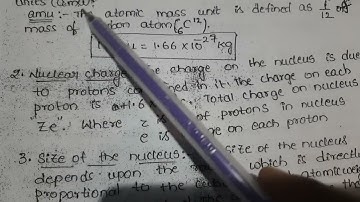 units (amu).
amu :- The atomic mass unit is defined as 1/12 of
mass of carbon atom (6C12).
u = 1.66 × 10-27 kg
2. Nuclear charge: The charge on the nucleus is due
to protons contained in it. the charge on each
proton is +1.6 Total charge on nucleus
Ze". Where z is of protons in nucleus
e is charge on each proton
3. Size of the nucleus: size of the nucleus
depends upon the which is directly
proportional to the atomic wei